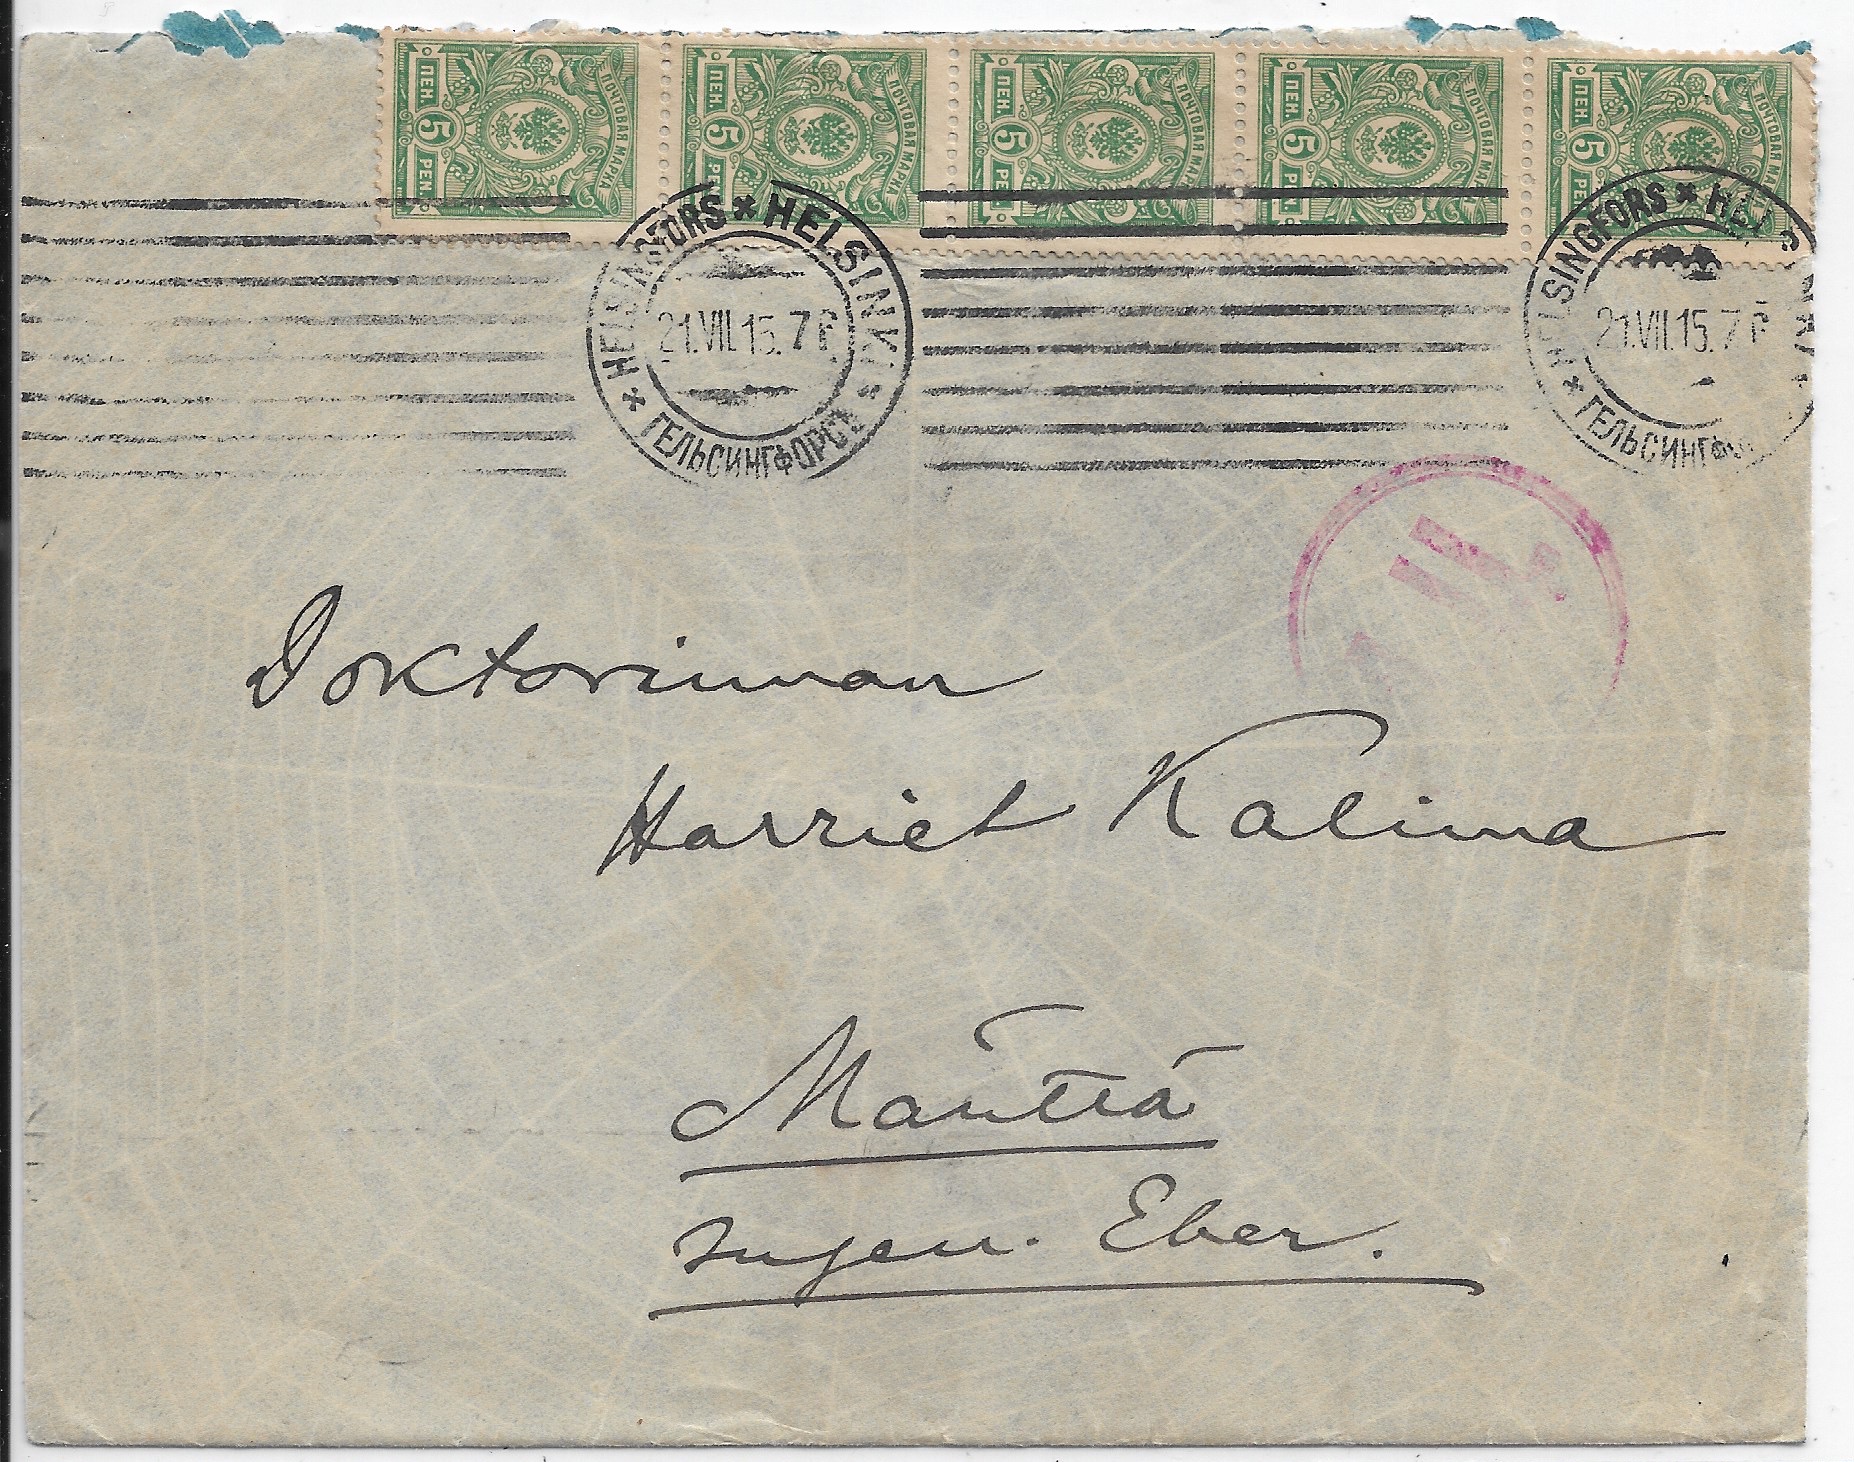 ПЕН. 5 PEN. ПОЧТОВАЯ МАРКА
ПЕН. 5 PEN. ПОЧТОВАЯ МАРКА
ПЕН. 5 PEN. ПОЧТОВАЯ МАРКА
ПЕН. 5 PEN. ПОЧТОВАЯ МАРКА
ПЕН. 5 PEN. ПОЧТОВАЯ МАРКА
HELSINGFORS * HELSINKI * ГЕЛЬСИНГФОРСЪ *
21.VII.15. 7
HELSINGFORS * HELSINKI * ГЕЛЬСИНГФОРСЪ *
21.VII.15. 7
Doktorinnan
Harriet Kalima
Mänttä
Eber.